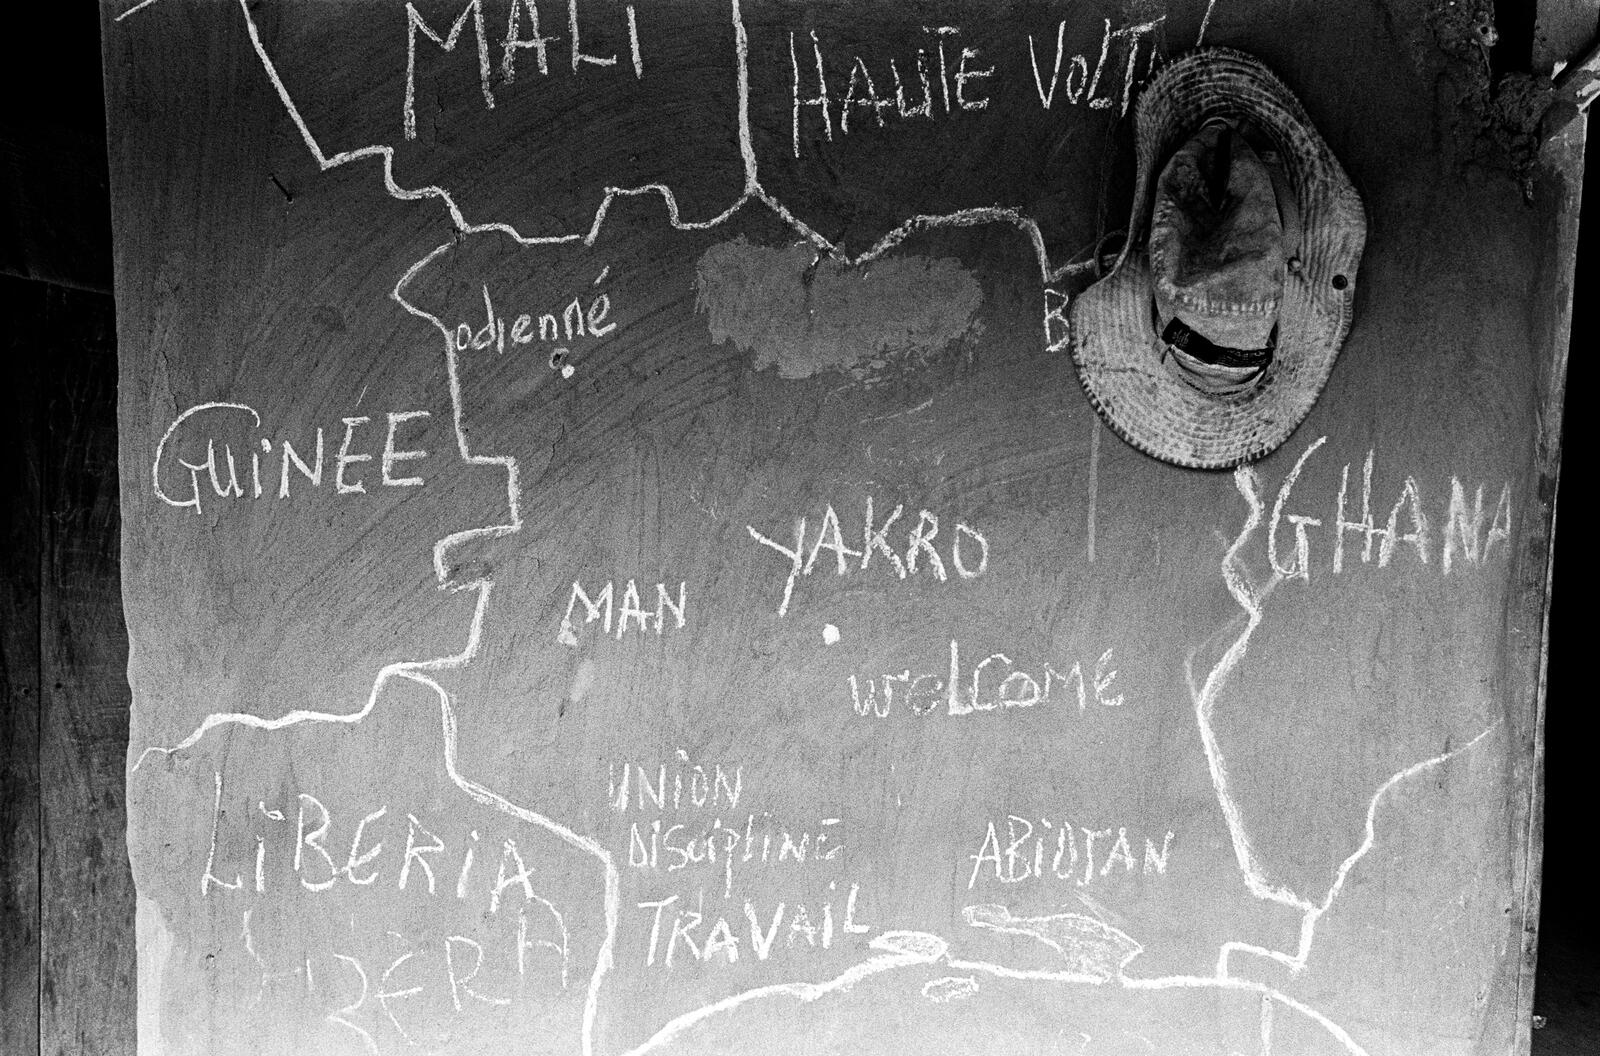 MALI
HAUTE VOLTA
odienné
B
GUINÉE
GHANA
YAKRO
MAN
welCOME
UNION
DISCIPLINE
TRAVAIL
ABIDJAN
LIBERIA